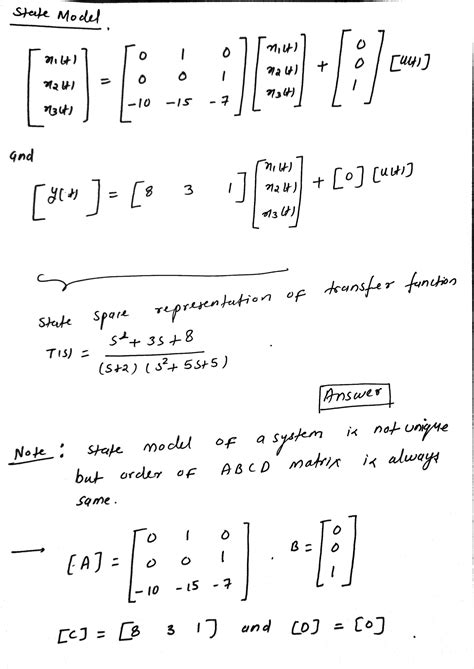 State Model.
[x1(t) x2(t) x3(t)] = [0 1 0 0 0 1 -10 -15 -7] [x1(t) x2(t) x3(t)] + [0 0 1] [u(t)]
and
[y(t)] = [8 3 1] [x1(t) x2(t) x3(t)] + [0] [u(t)]
State space representation of transfer function
T(s) = s²+3s+8 / (s+2)(s²+5s+5)
Answer
Note: State model of a system is not unique
but order of ABCD matrix is always
same.
→ [A] = [0 1 0 0 0 1 -10 -15 -7] . B = [0 0 1]
[C] = [8 3 1] and [D] = [0]